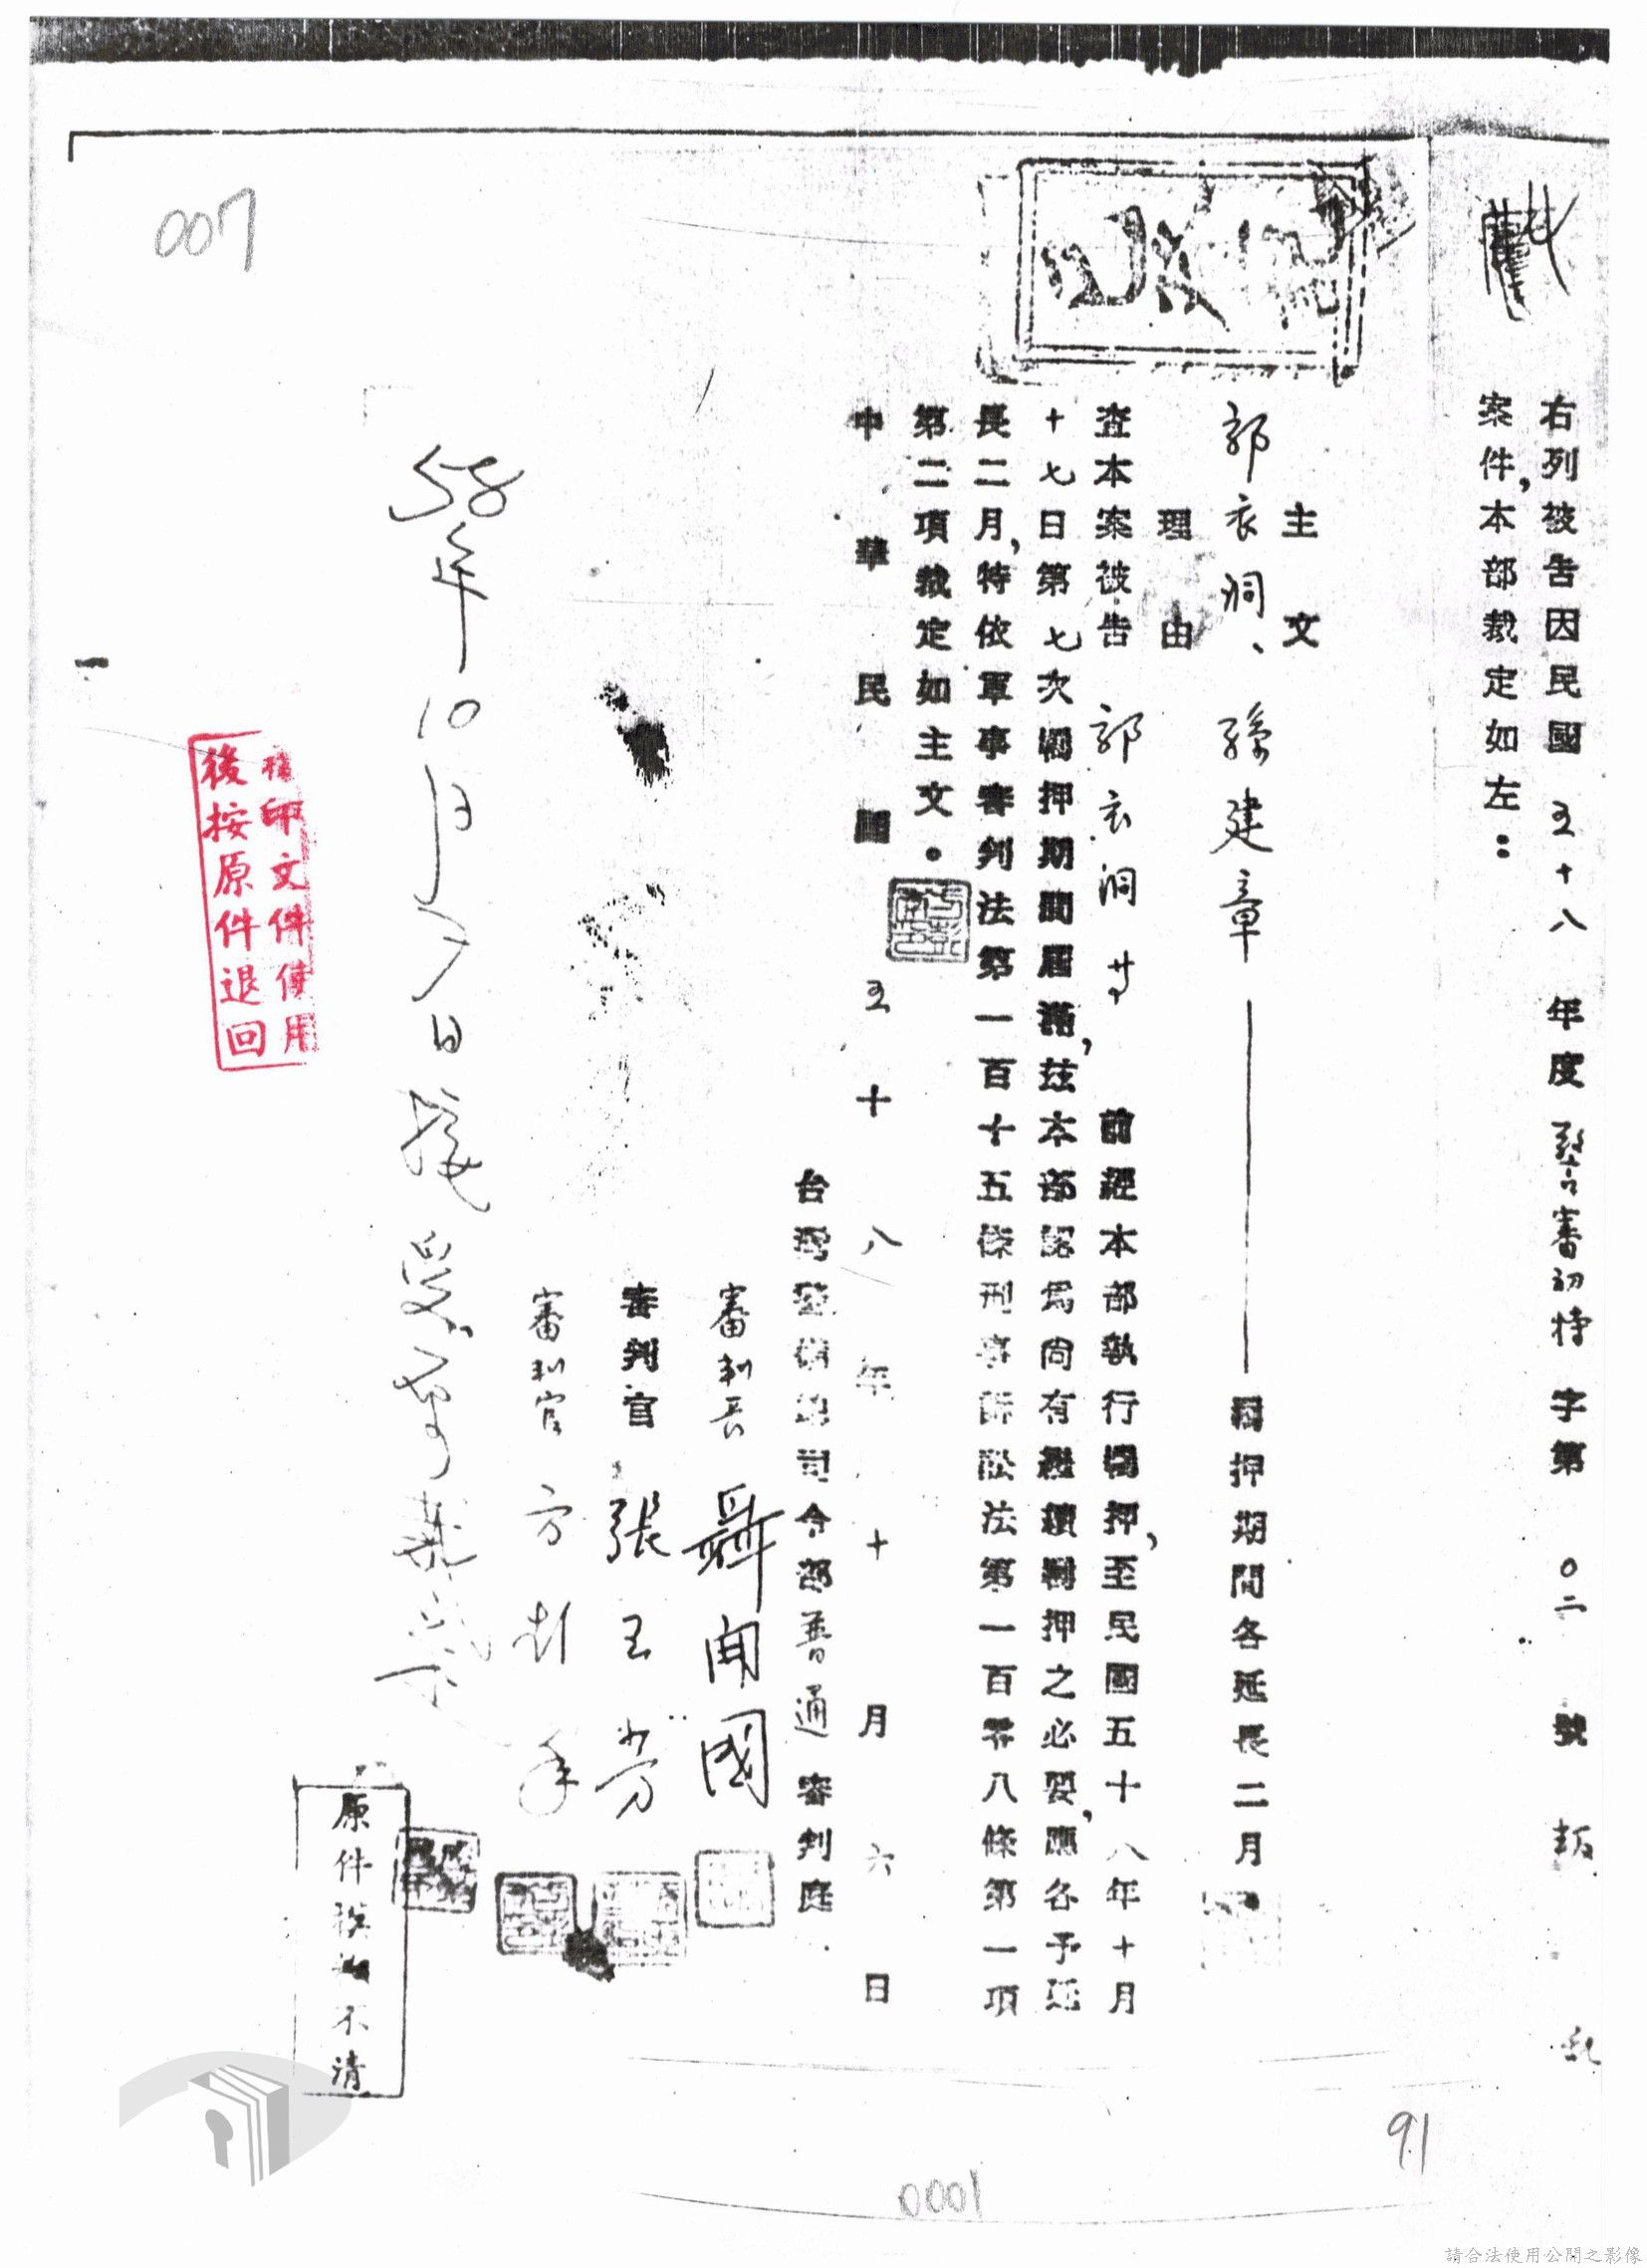 右列被告因民國五十八年度警審初特字第〇二號叛亂
案件,本部裁定如左:
主文
郭衣洞、孫建章 羈押期間各延長二月
理由
查本案被告郭衣洞等前經本部執行羈押,至民國五十八年十月
十七日第七次羈押期間屆滿,茲本部認為尚有繼續羈押之必要,應各予延
長二月,特依軍事審判法第一百十五條刑事訴訟法第一百零八條第一項
第二項裁定如主文。
中華民國五十八年十月六日
台灣警備總司令部普通審判庭
審判長 聶開國
審判官 張玉芳
審判官 方彭年
58年10月7日
007
複印文件使用
後按原件退回
原件模糊不清
91
0001
請合法使用公開之影像